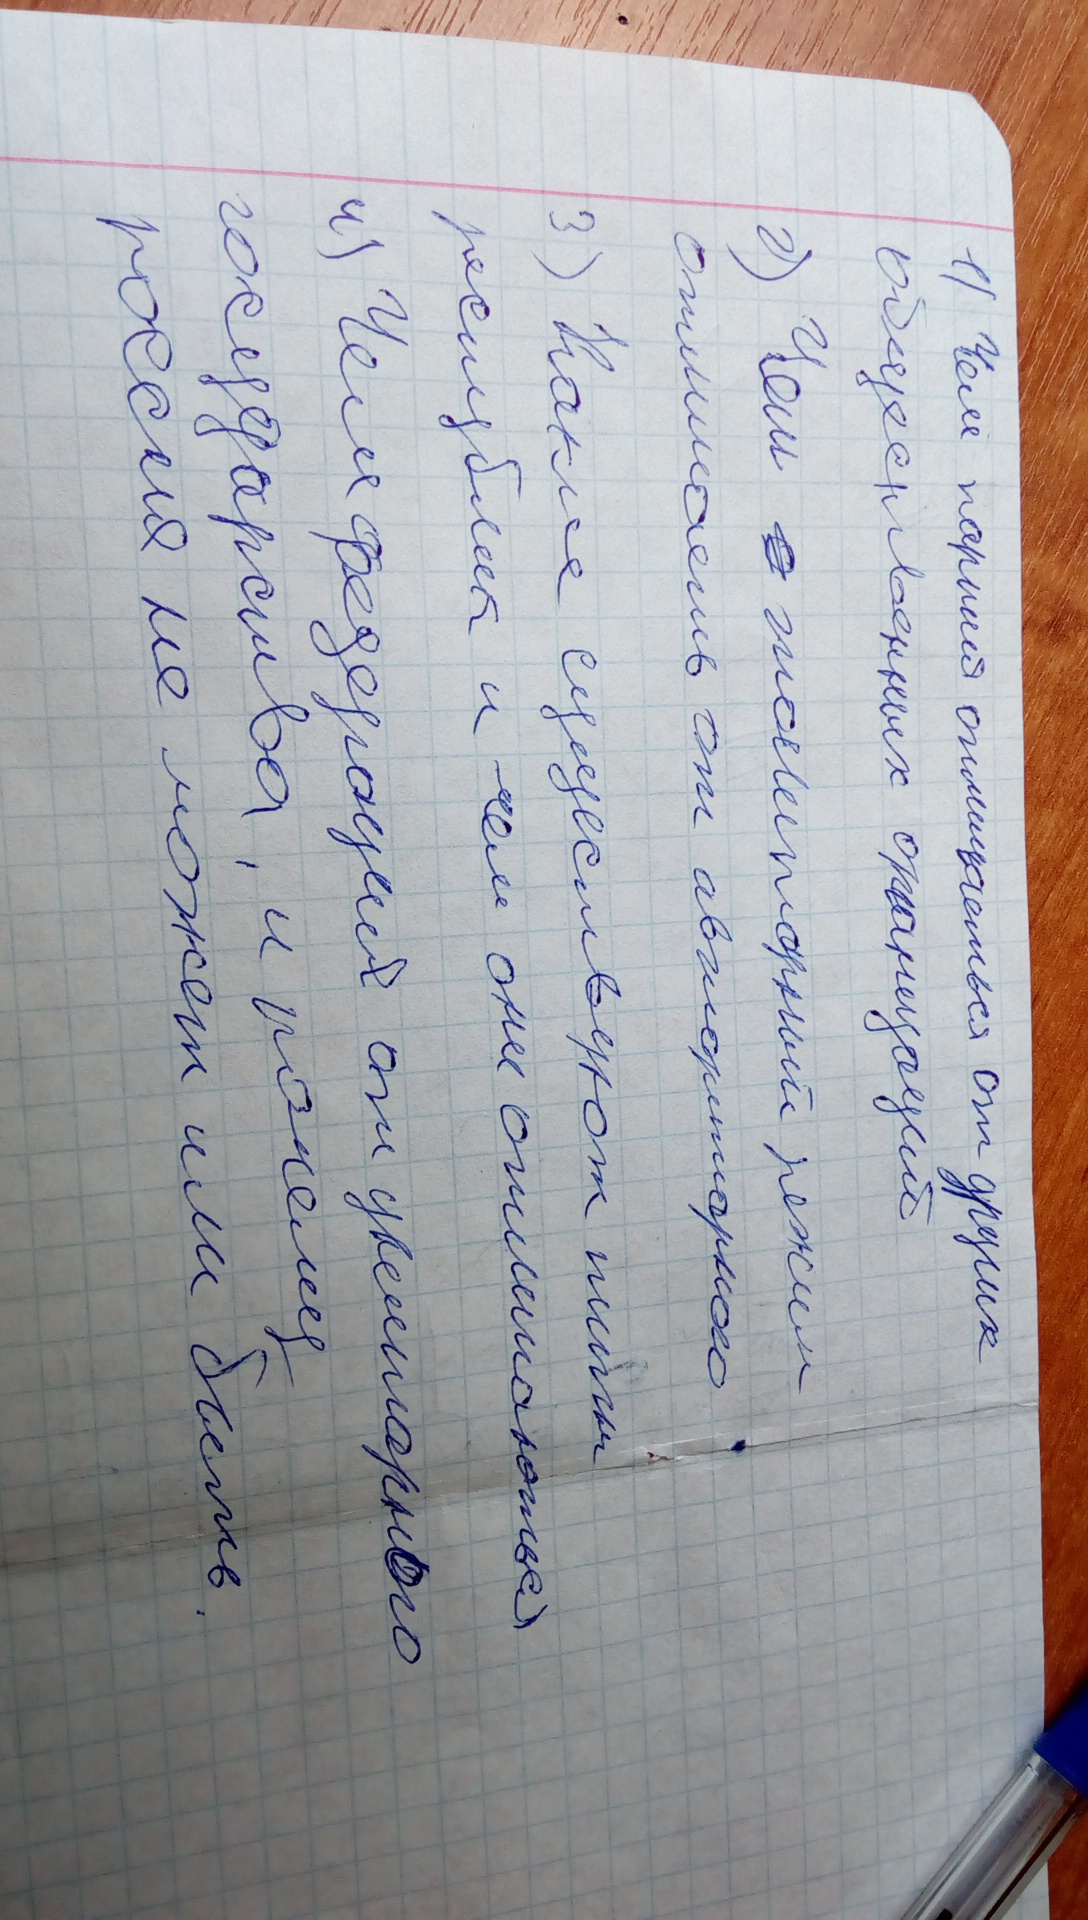 1) Чем партий отличаеться от других
общественных организаций
2) Чем тоталитарный режим
отличаеть от авторитарного
3) Какие существуют типы
республик и чем они отличаються
4) Чем федераций от увентарного
государства, и
россия не может или быть.